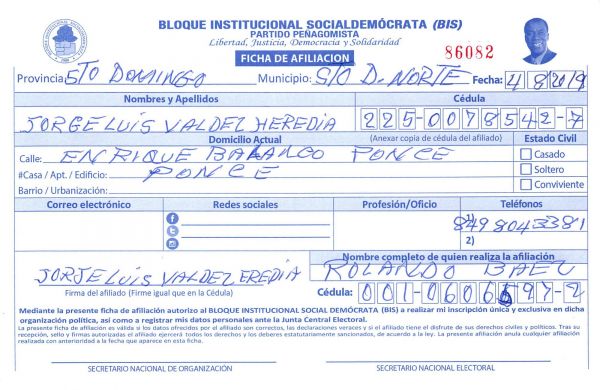 BLOQUE INSTITUCIONAL SOCIALDEMÓCRATA (BIS)
PARTIDO PEÑAGOMISTA
Libertad, Justicia, Democracia y Solidaridad
FICHA DE AFILIACION
86082
Provincia: STO DOMINGO Municipio: S/O D. NORTE Fecha: 4/8/2019
Nombres y Apellidos Cédula
JORGE LUIS VALDEZ HEREDIA 225-0078542-7
Domicilio Actual (Anexar copia de cédula del afiliado) Estado Civil
Calle: ENRIQUE BLANCO PONCE Casado
#Casa / Apt. / Edificio: PONCE Soltero
Barrio / Urbanización: Conviviente
Correo electrónico Redes sociales Profesión/Oficio Teléfonos
1) 8498043381
2)
Nombre completo de quien realiza la afiliación
JORJE LUIS VALDEZ EREDIA ROLANDO BAEZ
Firma del afiliado (Firme igual que en la Cédula) Cédula: 001-0606597-2
Mediante la presente ficha de afiliación autorizo al BLOQUE INSTITUCIONAL SOCIAL DEMÓCRATA (BIS) a realizar mi inscripción única y exclusiva en dicha
organización política, así como a registrar mis datos personales ante la Junta Central Electoral.
La presente ficha de afiliación es válida si los datos ofrecidos por el afiliado son correctos, las declaraciones veraces y si el afiliado tiene el disfrute de sus derechos civiles y políticos. Tras su
recepción, sello y firmas autorizadas el afiliado ejercerá todos los derechos y los deberes estatutariamente sancionados, de acuerdo a la ley. La presente afiliación anula cualquier afiliación
realizada con anterioridad a la fecha que aparece en esta ficha.
SECRETARIO NACIONAL DE ORGANIZACIÓN SECRETARIO NACIONAL ELECTORAL